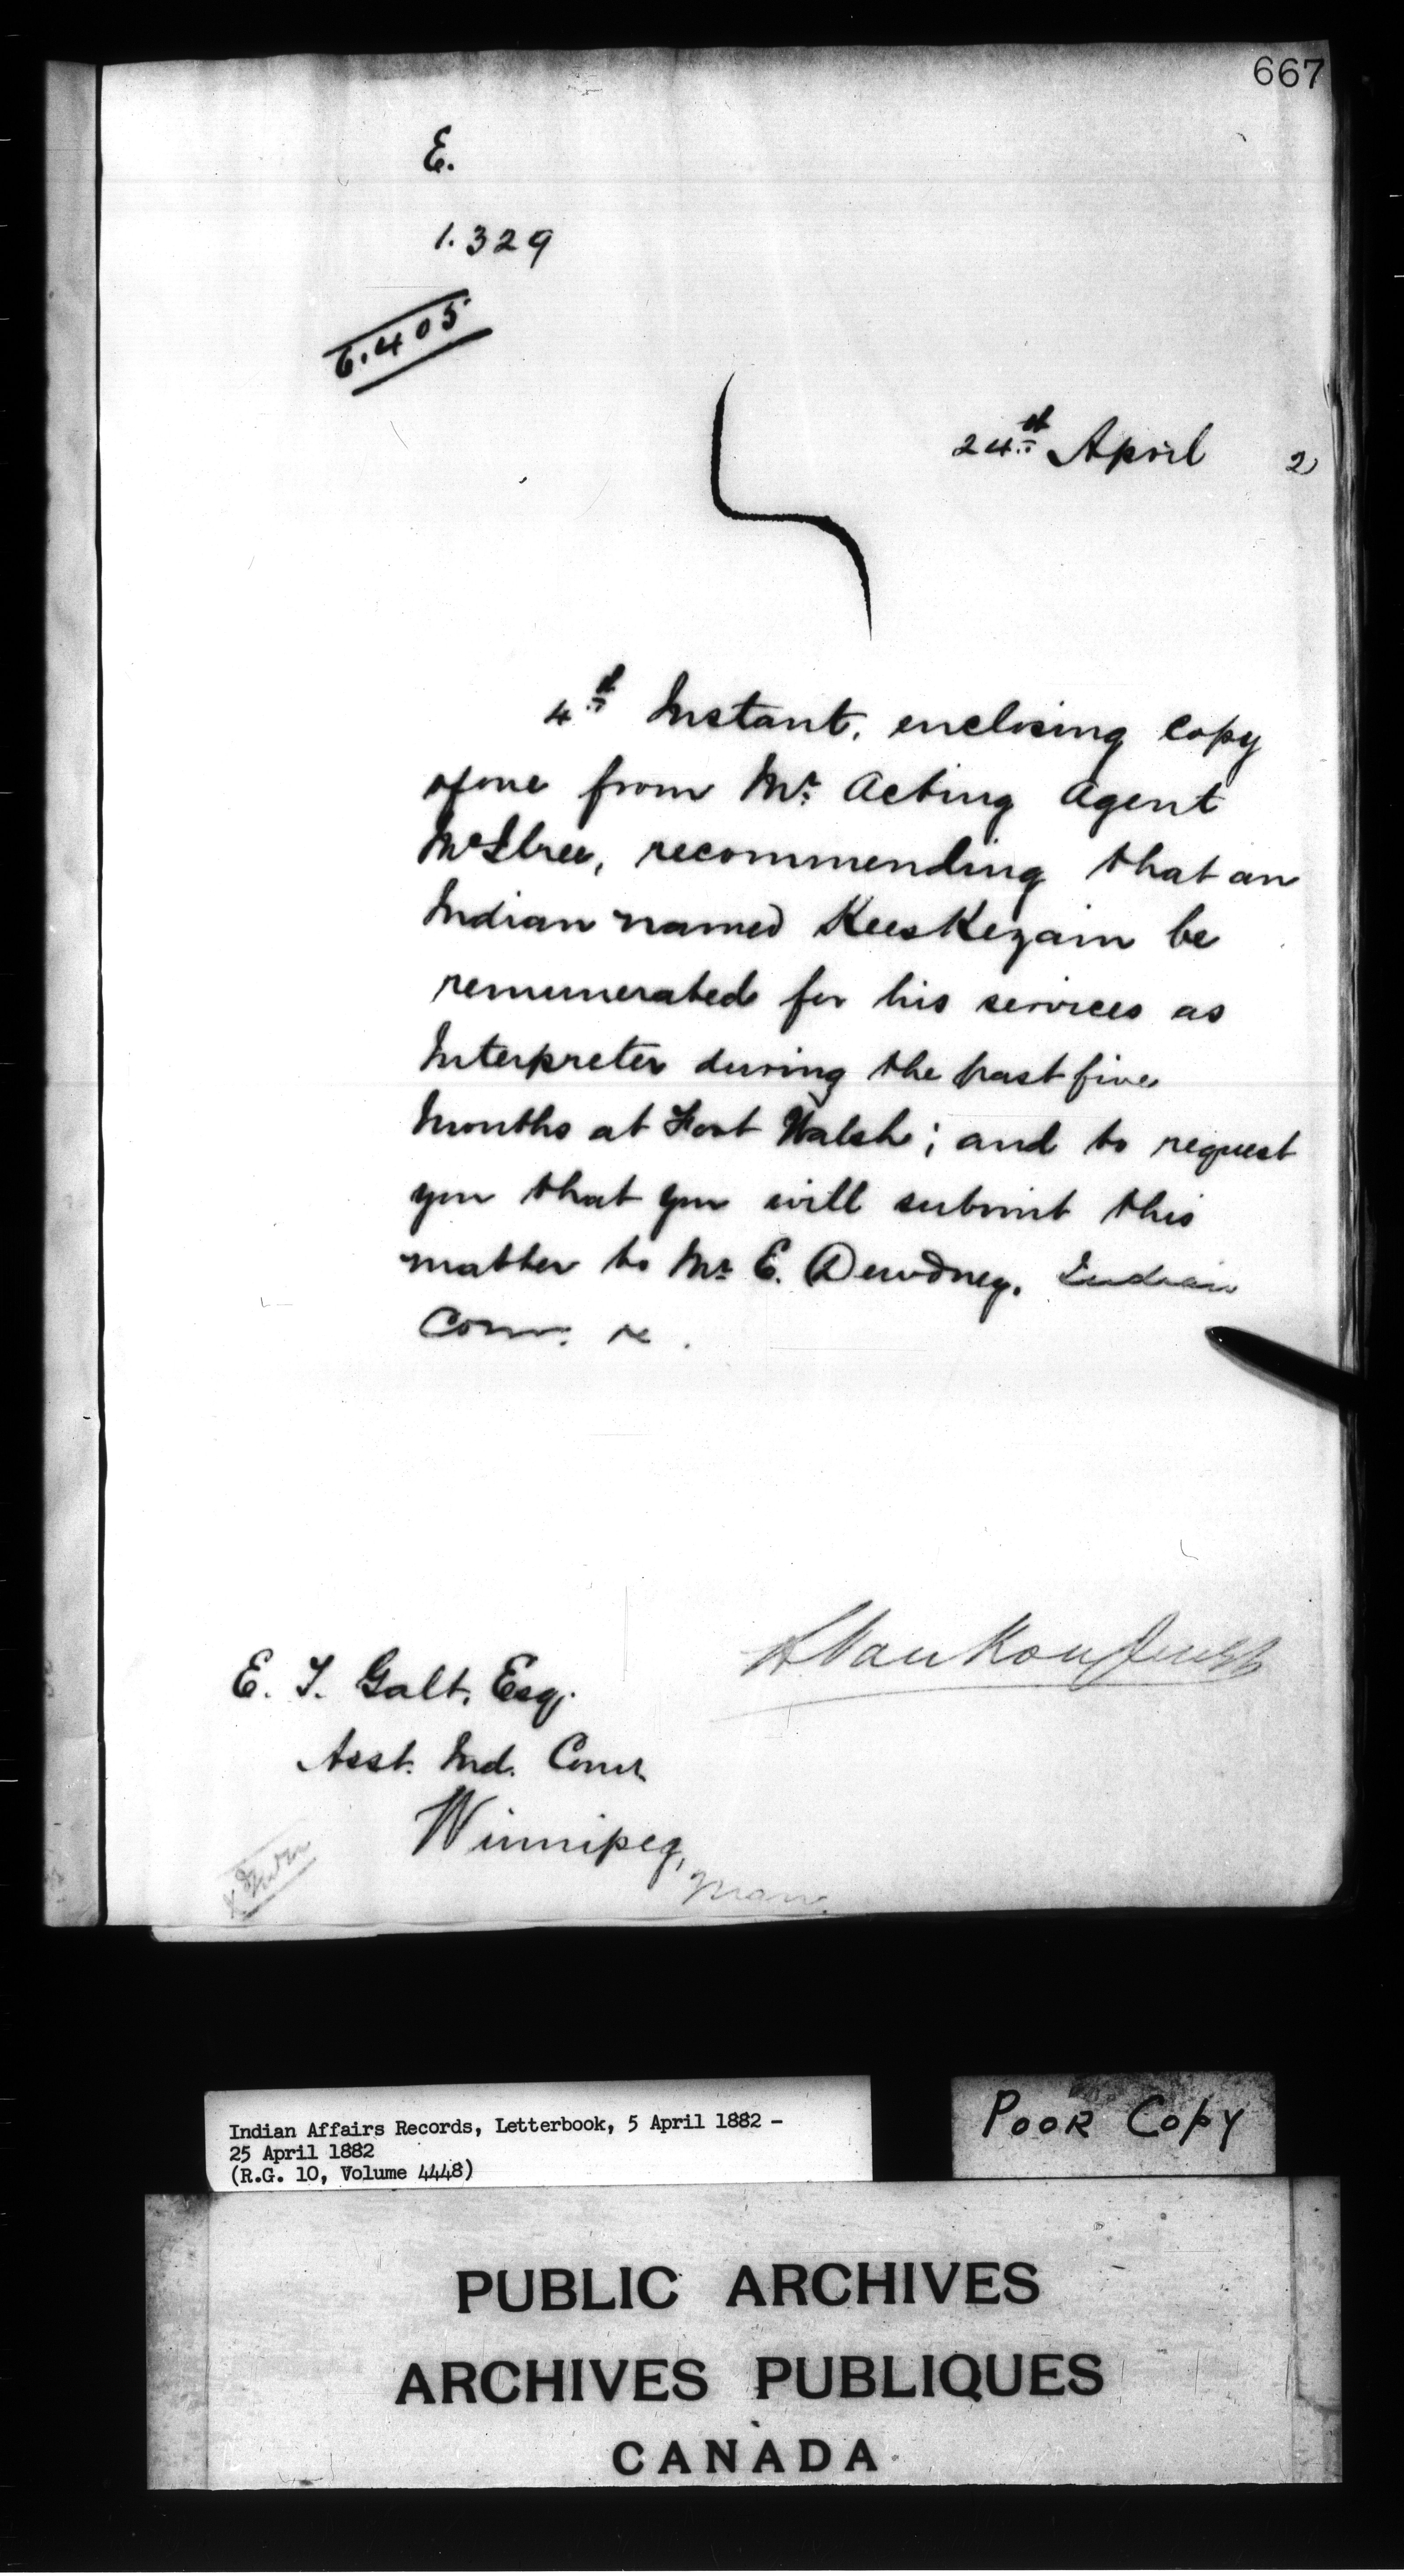 667
E.
1.329
E.405
24th April 2
4th Instant, enclosing copy
of one from Mr. Acting Agent
McIlree, recommending that an
Indian named KeesKezain be
remunerated for his services as
Interpreter during the past five
Months at Fort Walsh; and to request
you that you will submit this
matter to Mr. E. Dewdney, Indian
Comr. &c.
A Vankoughnet
E. T. Galt, Esq.
Asst. Ind. Comr.
Winnipeg,
Man.
Indian Affairs Records, Letterbook, 5 April 1882 -
25 April 1882
(R.G. 10, Volume 4448)
POOR COPY
PUBLIC ARCHIVES
ARCHIVES PUBLIQUES
CANADA